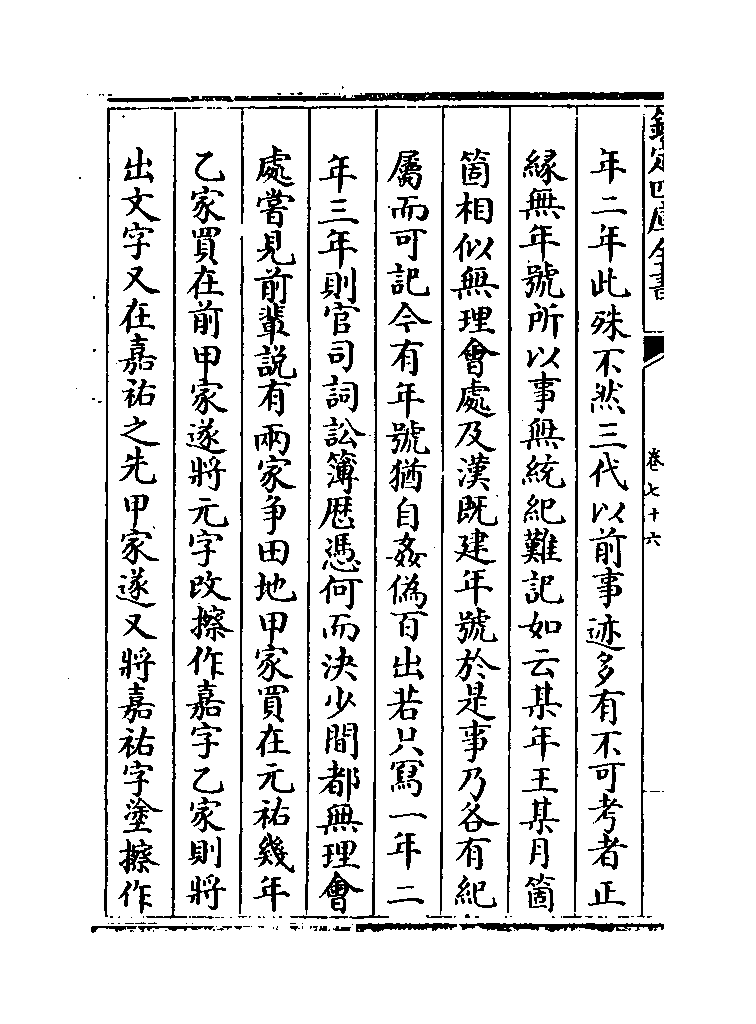 欽定四庫全書
卷七十六
年二年此殊不然三代以前事迹多有不可考者正
縁無年號所以事無統紀難記如云某年王某月箇
箇相似無理會處及漢既建年號於是事乃各有紀
屬而可記今有年號猶自姦偽百出若只寫一年二
年三年則官司詞訟簿厯憑何而決少間都無理會
處嘗見前輩説有兩家爭田地甲家買在元祐幾年
乙家買在前甲家遂將元字改擦作嘉字乙家則將
出文字又在嘉祐之先甲家遂又將嘉祐字塗擦作